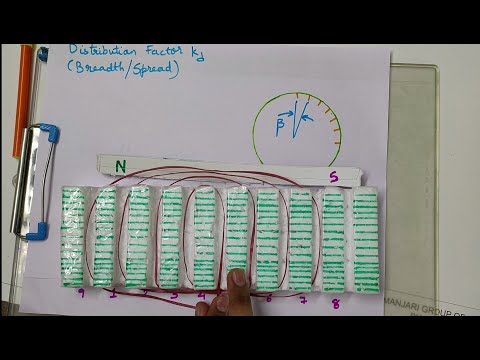 Distribution Factor Kd
(Breadth/Spread)
β
N S
9 1 2 3 4 6 7 8
MANJARI GROUP OF